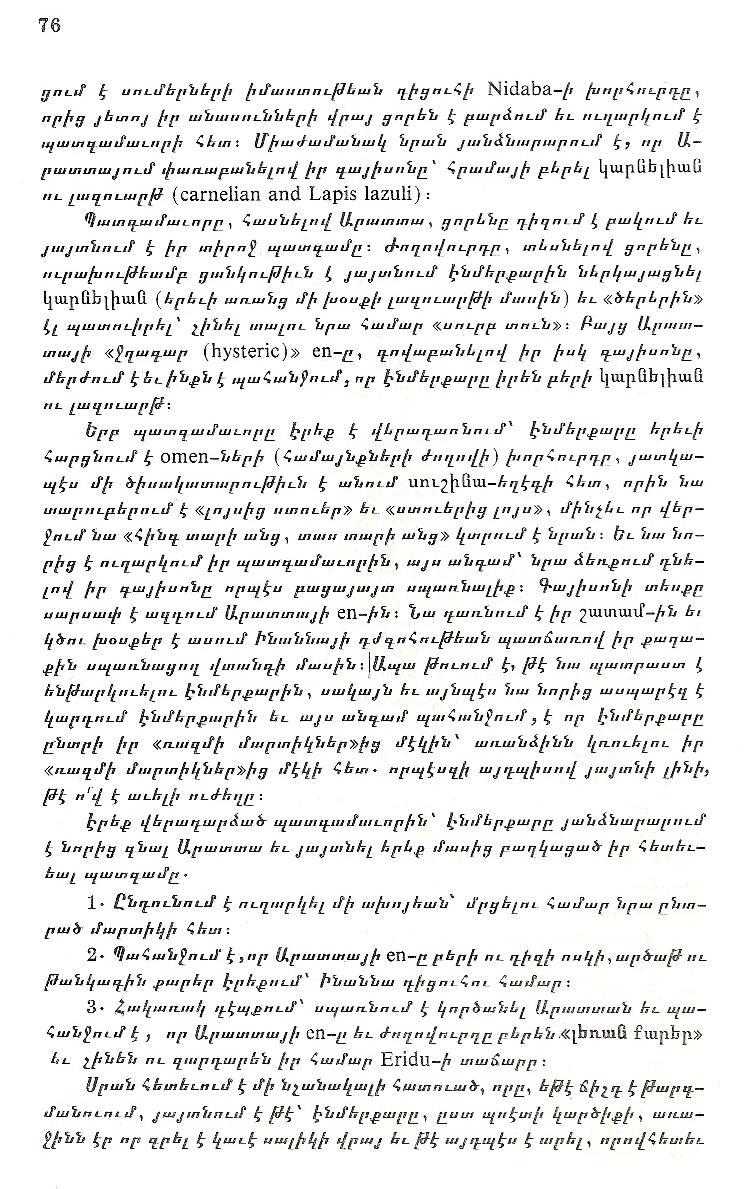 76
ցում է սումերների իմաստութեան դիցուհի Nidaba-ի խորհուրդը,
որից յետոյ իր անասունների վրայ ցորեն է բարձում եւ ուղարկում է
պատգամաւորի հետ։ Միաժամանակ նրան յանձնարարում է, որ Ա-
րատտայում փառաբանելով իր գայիսոնը՝ հրամայի բերել կարնելիան
ու լազուարթ (carnelian and Lapis lazuli)։
Պատգամաւորը, հասնելով Արատտա, ցորենը դիզում է բակում եւ
յայտնում է իր տիրոջ պատգամը։ Ժողովուրդը, տեսնելով ցորենը,
ուրախութեամբ ցանկութիւն է յայտնում էնմերքարին ներկայացնել
կարնելիան (երեւի առանց մի խօսքի լազուարթի մասին) եւ «ծերերին»
էլ պատուիրել՝ շինել տալու նրա համար «սուրբ տուն»։ Բայց Արատ-
տայի «ջղագար (hysteric)» en-ը, գովաբանելով իր իսկ գայիսոնը,
մերժում է եւ ինքն է պահանջում, որ էնմերքարը իրեն բերի կարնելիան
ու լազուարթ։
Երբ պատգամաւորը էրեք է վերադառնում՝ էնմերքարը երեւի
հարցնում է omen-ների (համայնքների ժողովի) խորհուրդը, յատկա-
պէս մի ծիսակատարութիւն է անում սուշինա-եղէգի հետ, որին նա
տարուբերում է «լոյսից ստուեր» եւ «ստուերից լոյս», մինչեւ որ վեր-
ջում նա «հինգ տարի անց, տաս տարի անց» կտրում է նրան։ Եւ նա նո-
րից է ուղարկում իր պատգամաւորին, այս անգամ՝ նրա ձեռքում դնե-
լով իր գայիսոնը որպէս բացայայտ սպառնալիք։ Գայիսոնի տեսքը
սարսափ է ազդում Արատտայի en-ին։ Նա դառնում է իր շատամ-ին եւ
կծու խօսքեր է ասում Ինաննայի դժգոհութեան պատճառով իր քաղա-
քին սպառնացող վտանգի մասին։ Ապա թւում է, թէ նա պատրաստ է
ենթարկուելու էնմերքարին, սակայն եւ այնպէս նա նորից ասպարէզ է
կարդում էնմերքարին եւ այս անգամ պահանջում, է որ էնմերքարը
ընտրի իր «ռազմի մարտիկներ»ից մէկին՝ առանձինն կռուելու իր
«ռազմի մարտիկներ»ից մէկի հետ․ որպէսզի այդպիսով յայտնի լինի,
թէ ո՛վ է աւելի ուժեղը։
էրեք վերադարձած պատգամաւորին՝ էնմերքարը յանձնարարում
է նորից գնալ Արատտա եւ յայտնել երեք մասից բաղկացած իր հետեւ-
եալ պատգամը․
1․ Ընդունում է ուղարկել մի ախոյեան՝ մրցելու համար նրա ընտ-
րած մարտիկի հետ։
2․ Պահանջում է, որ Արատտայի en-ը բերի ու դիզի ոսկի, արծաթ ու
թանկագին քարեր էրեքում՝ Ինաննա դիցուհու համար։
3․ Հակառակ դէպքում՝ սպառնում է կործանել Արատտան եւ պա-
հանջում է, որ Արատտայի en-ը եւ ժողովուրդը բերեն «լեռան քարեր»
եւ շինեն ու զարդարեն իր համար Eridu-ի տաճարը։
Սրան հետեւում է մի նշանակալի հատուած, որը, եթէ ճիշդ է թարգ-
մանուում, յայտնում է թէ՝ էնմերքարը, ըստ պոէտի կարծիքի, առա-
ջինն էր որ գրել է կաւէ սալիկի վրայ եւ թէ այդպէս է արել, որովհետեւ